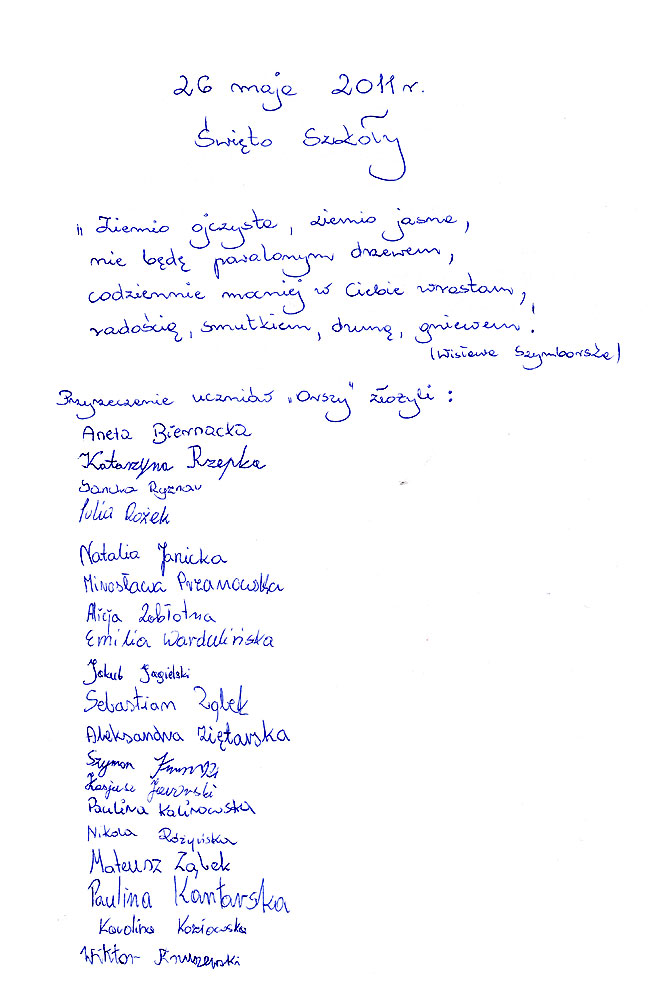 26 maja 2011 r.
Święto Szkoły
"Ziemio ojczysta, ziemio jasna,
nie będę powalonym drzewem,
codziennie mocniej w Ciebie wrastam,
radością, smutkiem, dumą, gniewem!
(Wisława Szymborska)
Przyrzeczenie uczniów "Orszy" złożyli:
Aneta Biernacka
Katarzyna Rzepka
Julia Rożek
Natalia Janicka
Mirosława Przanowska
Alicja Zabłotna
Emilia Wardulińska
Jakub Jagielski
Sebastian Ząbek
Aleksandra Ziętarska
Szymon
Jaworski
Paulina Kalinowska
Nikola Różyńska
Mateusz Ząbek
Paulina Kantarska
Karolina Koziowska
Wiktor Kruszewski